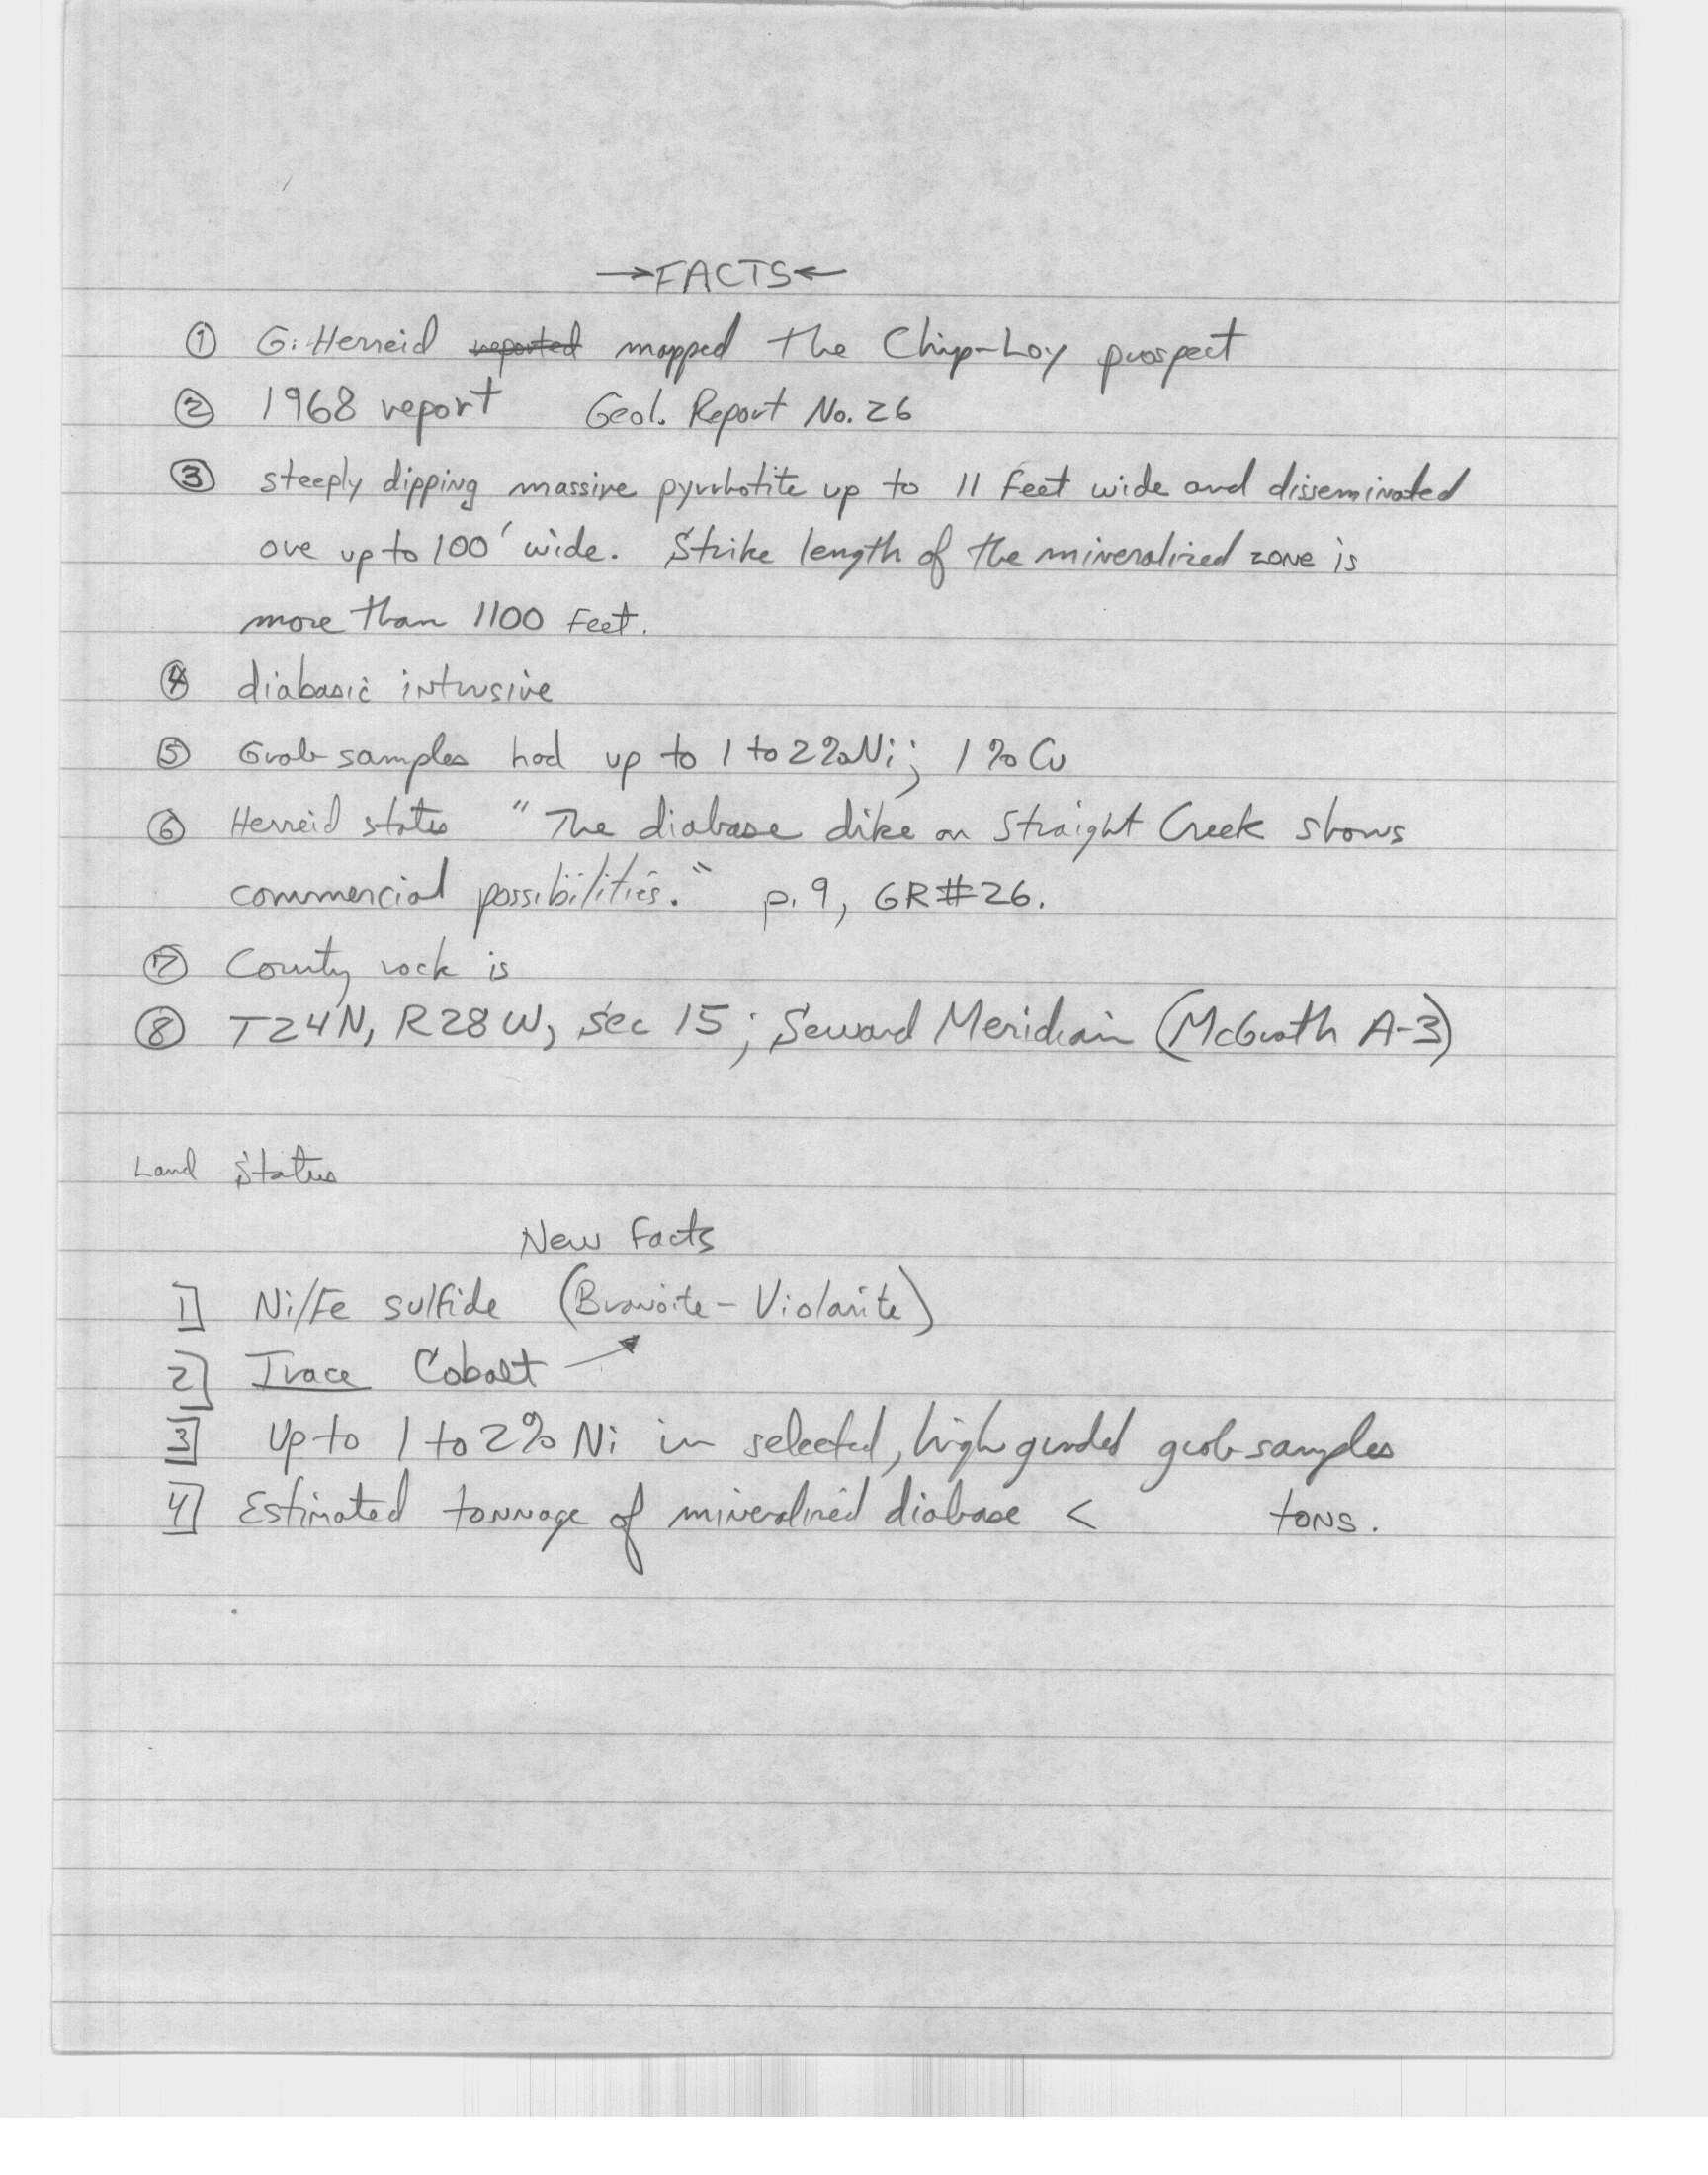 →FACTS←
① G. Herreid reported mapped the Chip-Loy prospect
② 1968 report Geol. Report No. 26
③ steeply dipping massive pyrrhotite up to 11 feet wide and disseminated
ore up to 100' wide. Strike length of the mineralized zone is
more than 1100 feet.
④ diabasic intrusive
⑤ Grab samples had up to 1 to 2% Ni; 1% Cu
⑥ Herreid states "The diabase dike on Straight Creek shows
commercial possibilities." p. 9, GR#26.
⑦ County rock is
⑧ T24N, R28W, Sec 15; Seward Meridian (McGrath A-3)
Land Status
New Facts
1] Ni/Fe sulfide (Bravoite-Violarite)
2] Trace Cobalt →
3] Up to 1 to 2% Ni in selected, high graded grab samples
4] Estimated tonnage of mineralized diabase < tons.